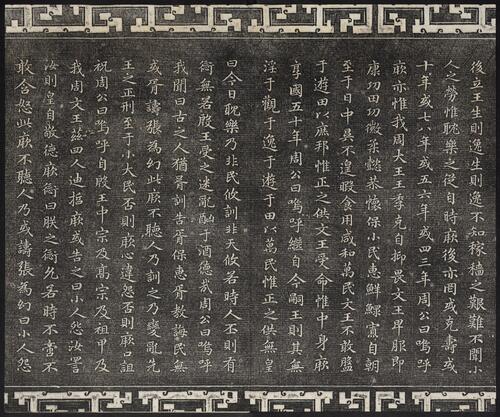 後立王生則逸生則逸不知稼穡之艱難不聞小
人之勞惟耽樂之從自時厥後亦罔或克壽或
十年或七八年或五六年或四三年周公曰嗚呼
厥亦惟我周大王王季克自抑畏文王卑服即
康功田功徽柔懿恭懷保小民惠鮮鰥寡自朝
至于日中昃不遑暇食用咸和萬民文王不敢盤
于遊田以庶邦惟正之供文王受命惟中身厥
享國五十年周公曰嗚呼繼自今嗣王則其無
淫于觀于逸于遊于田以萬民惟正之供無皇
曰今日耽樂乃非民攸訓非天攸若時人丕則有
愆無若殷王受之迷亂酗于酒德哉周公曰嗚呼
我聞曰古之人猶胥訓告胥保惠胥教誨民無
或胥譸張為幻此厥不聽人乃訓之乃變亂先
王之正刑至于小大民否則厥心違怨否則厥口詛
祝周公曰嗚呼自殷王中宗及高宗及祖甲及
我周文王茲四人迪哲厥或告之曰小人怨汝詈
汝則皇自敬德厥愆曰朕之愆允若時不啻不
敢含怒此厥不聽人乃或譸張為幻曰小人怨